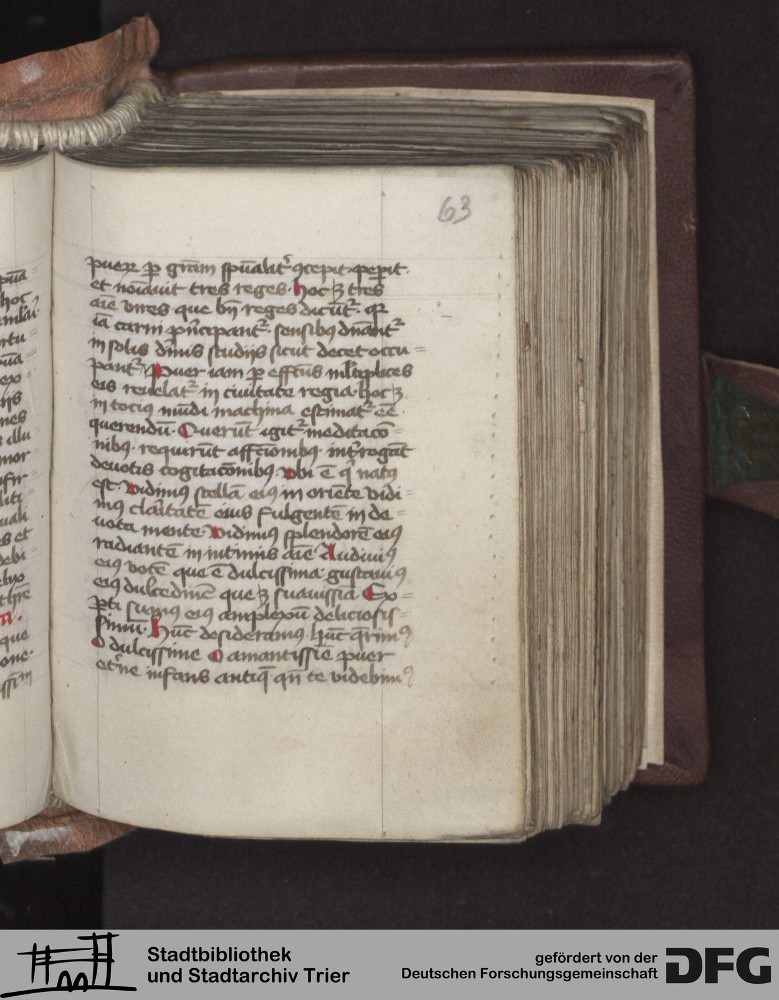 63
puerū ꝑ grām spūalit᷑ ꝯcepit ⁊ peꝑit
et noīauit tres reges. hoc ꝫ tres
aīe vires que bn̄ reges dicūt᷑. qꝛ
iā carni pn̄cipant᷑. sensibꝫ dn̄ant᷑
in solis dīnis studijs sicut decet occu=
pant᷑. Puer iam ꝑ effctus ml̄tiplices
eis reuelat᷑ in ciuitate regia. hoc ꝫ
in tocius mūdi machina estimat᷑ eē.
querendū. Querūt igit᷑ meditacō=
nibꝫ. requirūt affc̄ionibꝫ. int̄rogāt
deuotis cogitacōnibꝫ. vbi ē qͥ natꝰ
est. vidimꝰ stellā eiꝰ in oriēte vidi=
mꝰ claritatē eius fulgentē in de=
uota mente. vidimꝰ splendorē eiꝰ
radiantē in intimis aīe Audiuimꝰ
eiꝰ vocē que ē dulcissima. gustauimꝰ
eiꝰ dulcedinē que ꝫ suauissīa Ex=
ꝑti sumꝰ eiꝰ amplexū deliciosis=
simū. hūc desideramꝰ. hūc q̄rimꝰ
O dulcissime O amantissīe puer
et̄ne infans antiq̄ qn̄ te videbimꝰ
Stadtbibliothek
und Stadtarchiv Trier
gefördert von der
Deutschen Forschungsgemeinschaft
DFG